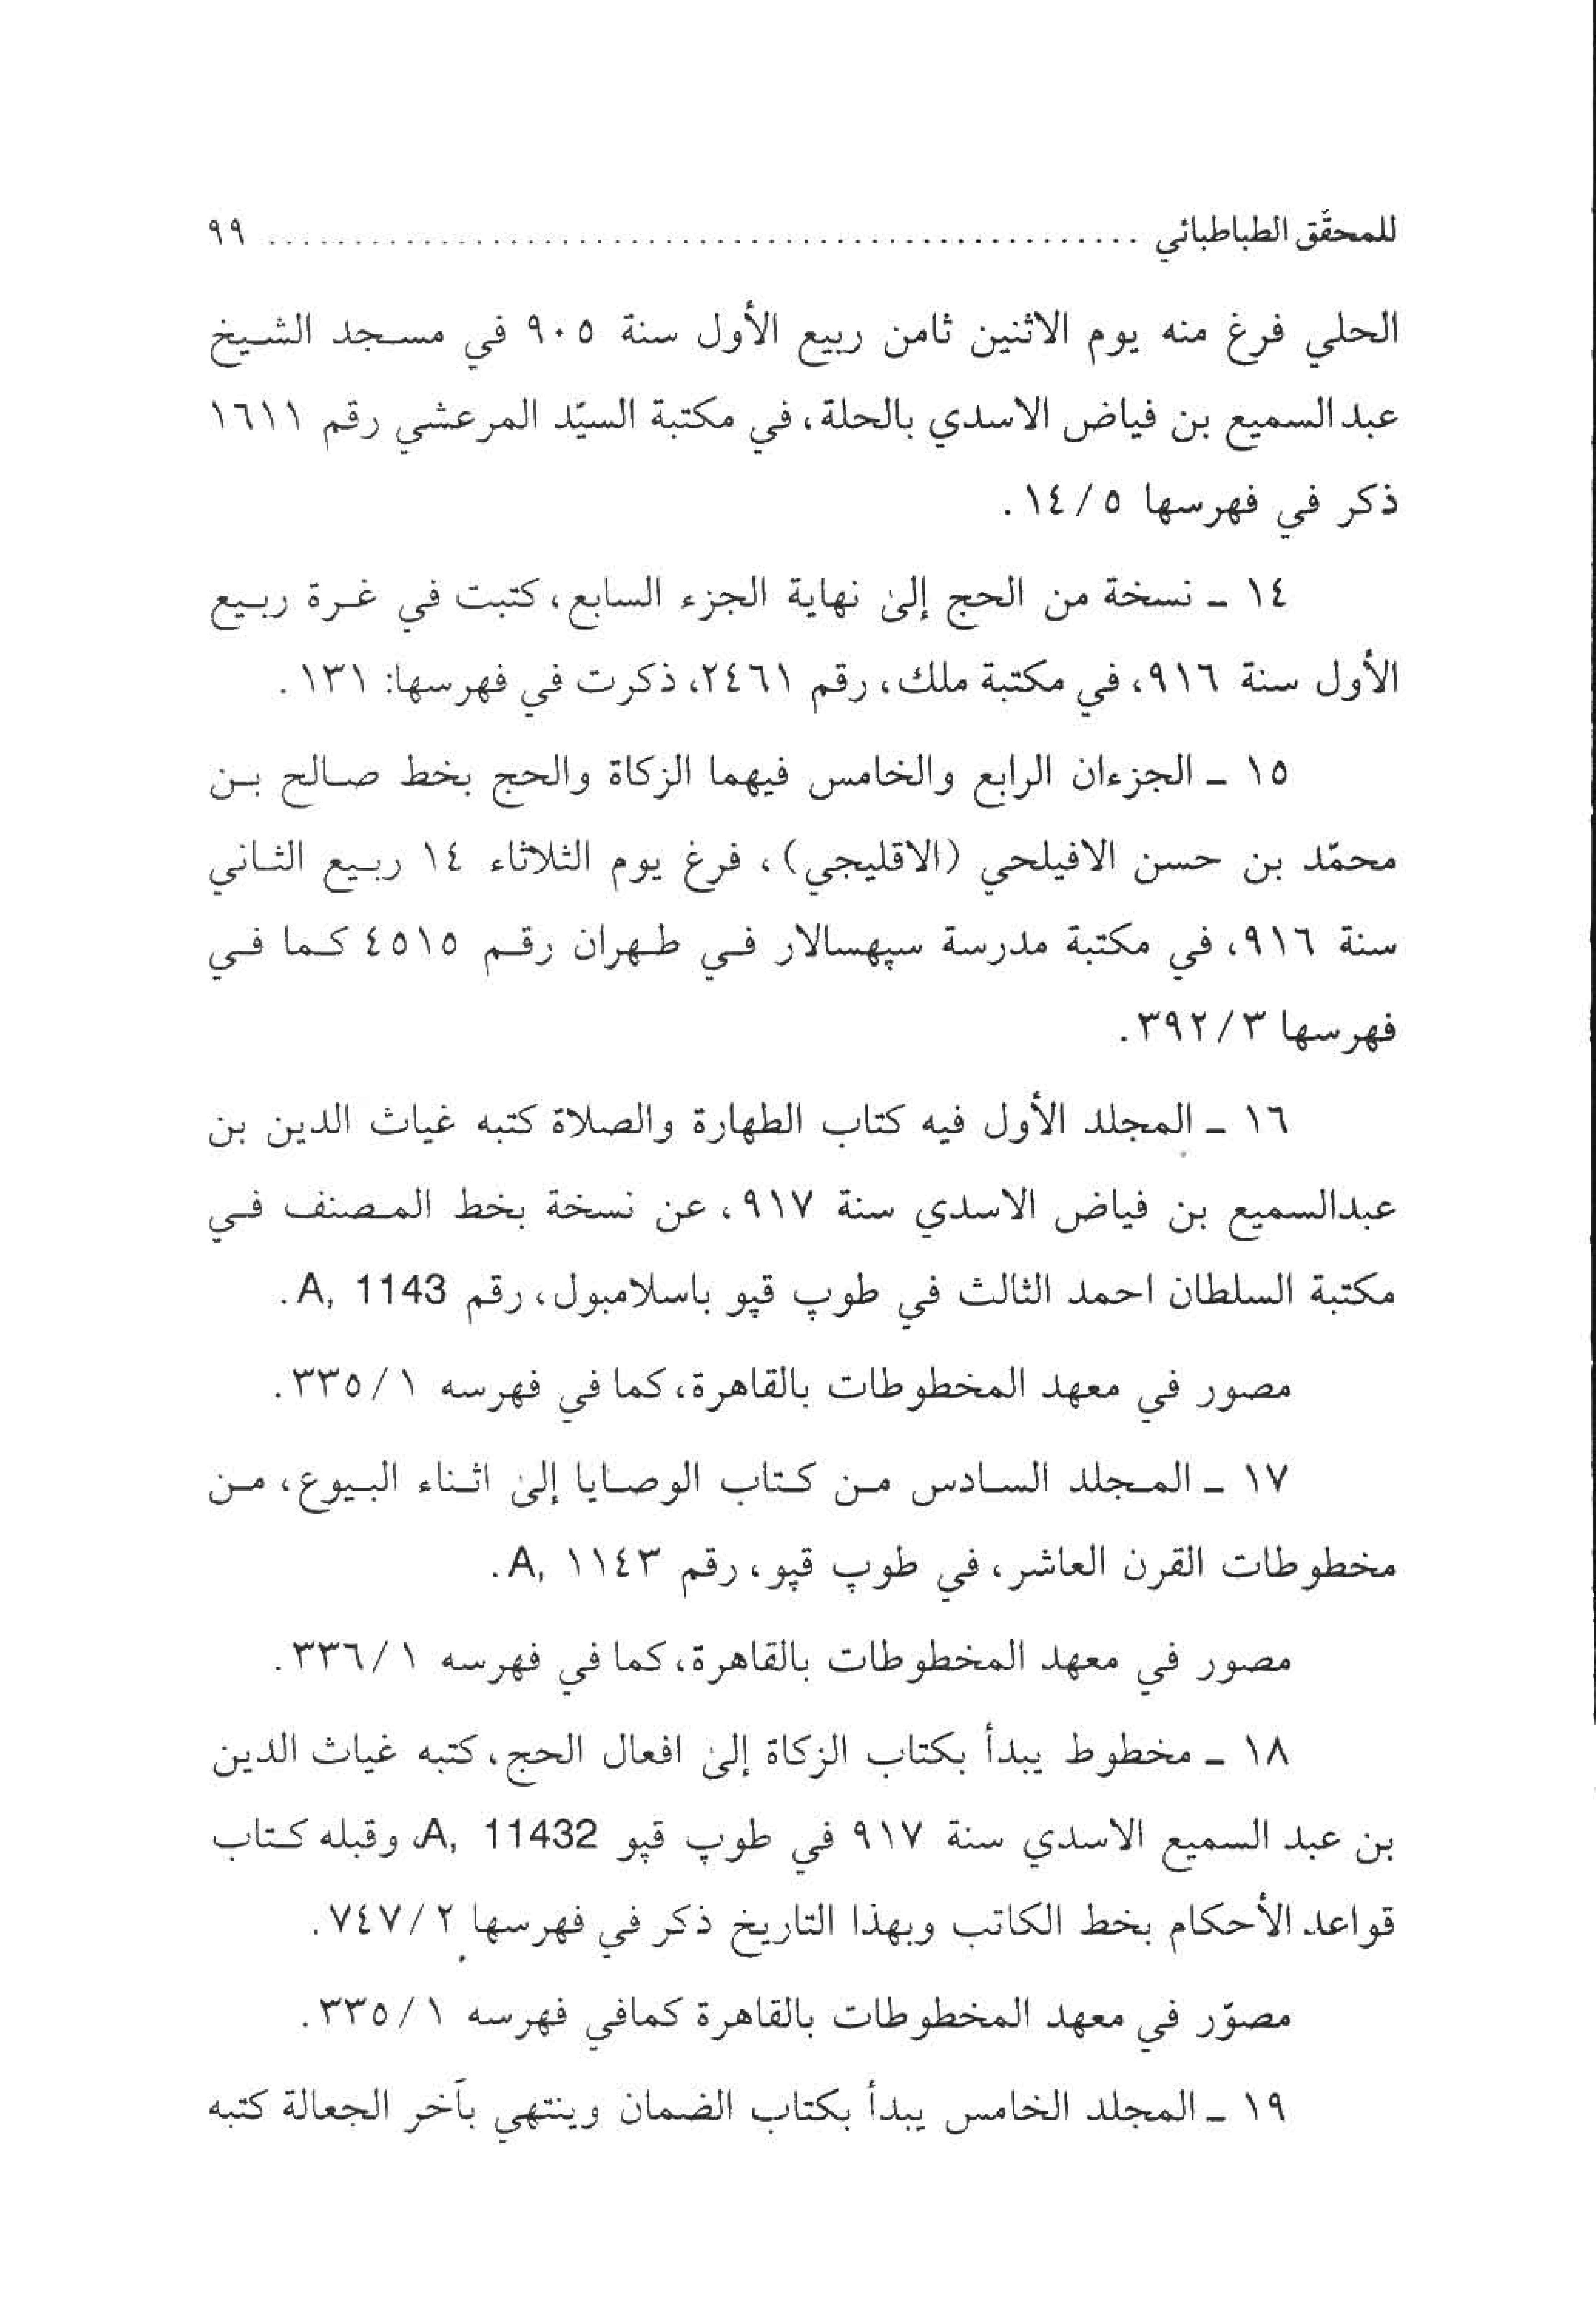 للمحقَّق الطباطبائي ................................................... ٩٩
الحلي فرغ منه يوم الاثنين ثامن ربيع الأول سنة ٩٠٥ في مسجد الشيخ
عبدالسميع بن فياض الاسدي بالحلة، في مكتبة السيّد المرعشي رقم ١٦١١
ذكر في فهرسها ٥/١٤.
١٤ ـ نسخة من الحج إلىٰ نهاية الجزء السابع، كتبت في غرة ربيع
الأول سنة ٩١٦، في مكتبة ملك، رقم ٢٤٦١، ذكرت في فهرسها: ١٣١.
١٥ ـ الجزءان الرابع والخامس فيهما الزكاة والحج بخط صالح بن
محمّد بن حسن الافيلحي (الاقليجي)، فرغ يوم الثلاثاء ١٤ ربيع الثاني
سنة ٩١٦، في مكتبة مدرسة سپهسالار في طهران رقم ٤٥١٥ كما في
فهرسها ٣/٣٩٢.
١٦ ـ المجلد الأول فيه كتاب الطهارة والصلاة كتبه غياث الدين بن
عبدالسميع بن فياض الاسدي سنة ٩١٧، عن نسخة بخط المصنف في
مكتبة السلطان احمد الثالث في طوپ قپو باسلامبول، رقم A, 1143.
مصور في معهد المخطوطات بالقاهرة، كما في فهرسه ١/٣٣٥.
١٧ ـ المجلد السادس من كتاب الوصايا إلىٰ اثناء البيوع، من
مخطوطات القرن العاشر، في طوپ قپو، رقم A, ١١٤٣.
مصور في معهد المخطوطات بالقاهرة، كما في فهرسه ١/٣٣٦.
١٨ ـ مخطوط يبدأ بكتاب الزكاة إلىٰ افعال الحج، كتبه غياث الدين
بن عبد السميع الاسدي سنة ٩١٧ في طوپ قپو A, 11432، وقبله كتاب
قواعد الأحكام بخط الكاتب وبهذا التاريخ ذكر في فهرسها ٢/٧٤٧.
مصوّر في معهد المخطوطات بالقاهرة كمافي فهرسه ١/٣٣٥.
١٩ ـ المجلد الخامس يبدأ بكتاب الضمان وينتهي بآخر الجعالة كتبه